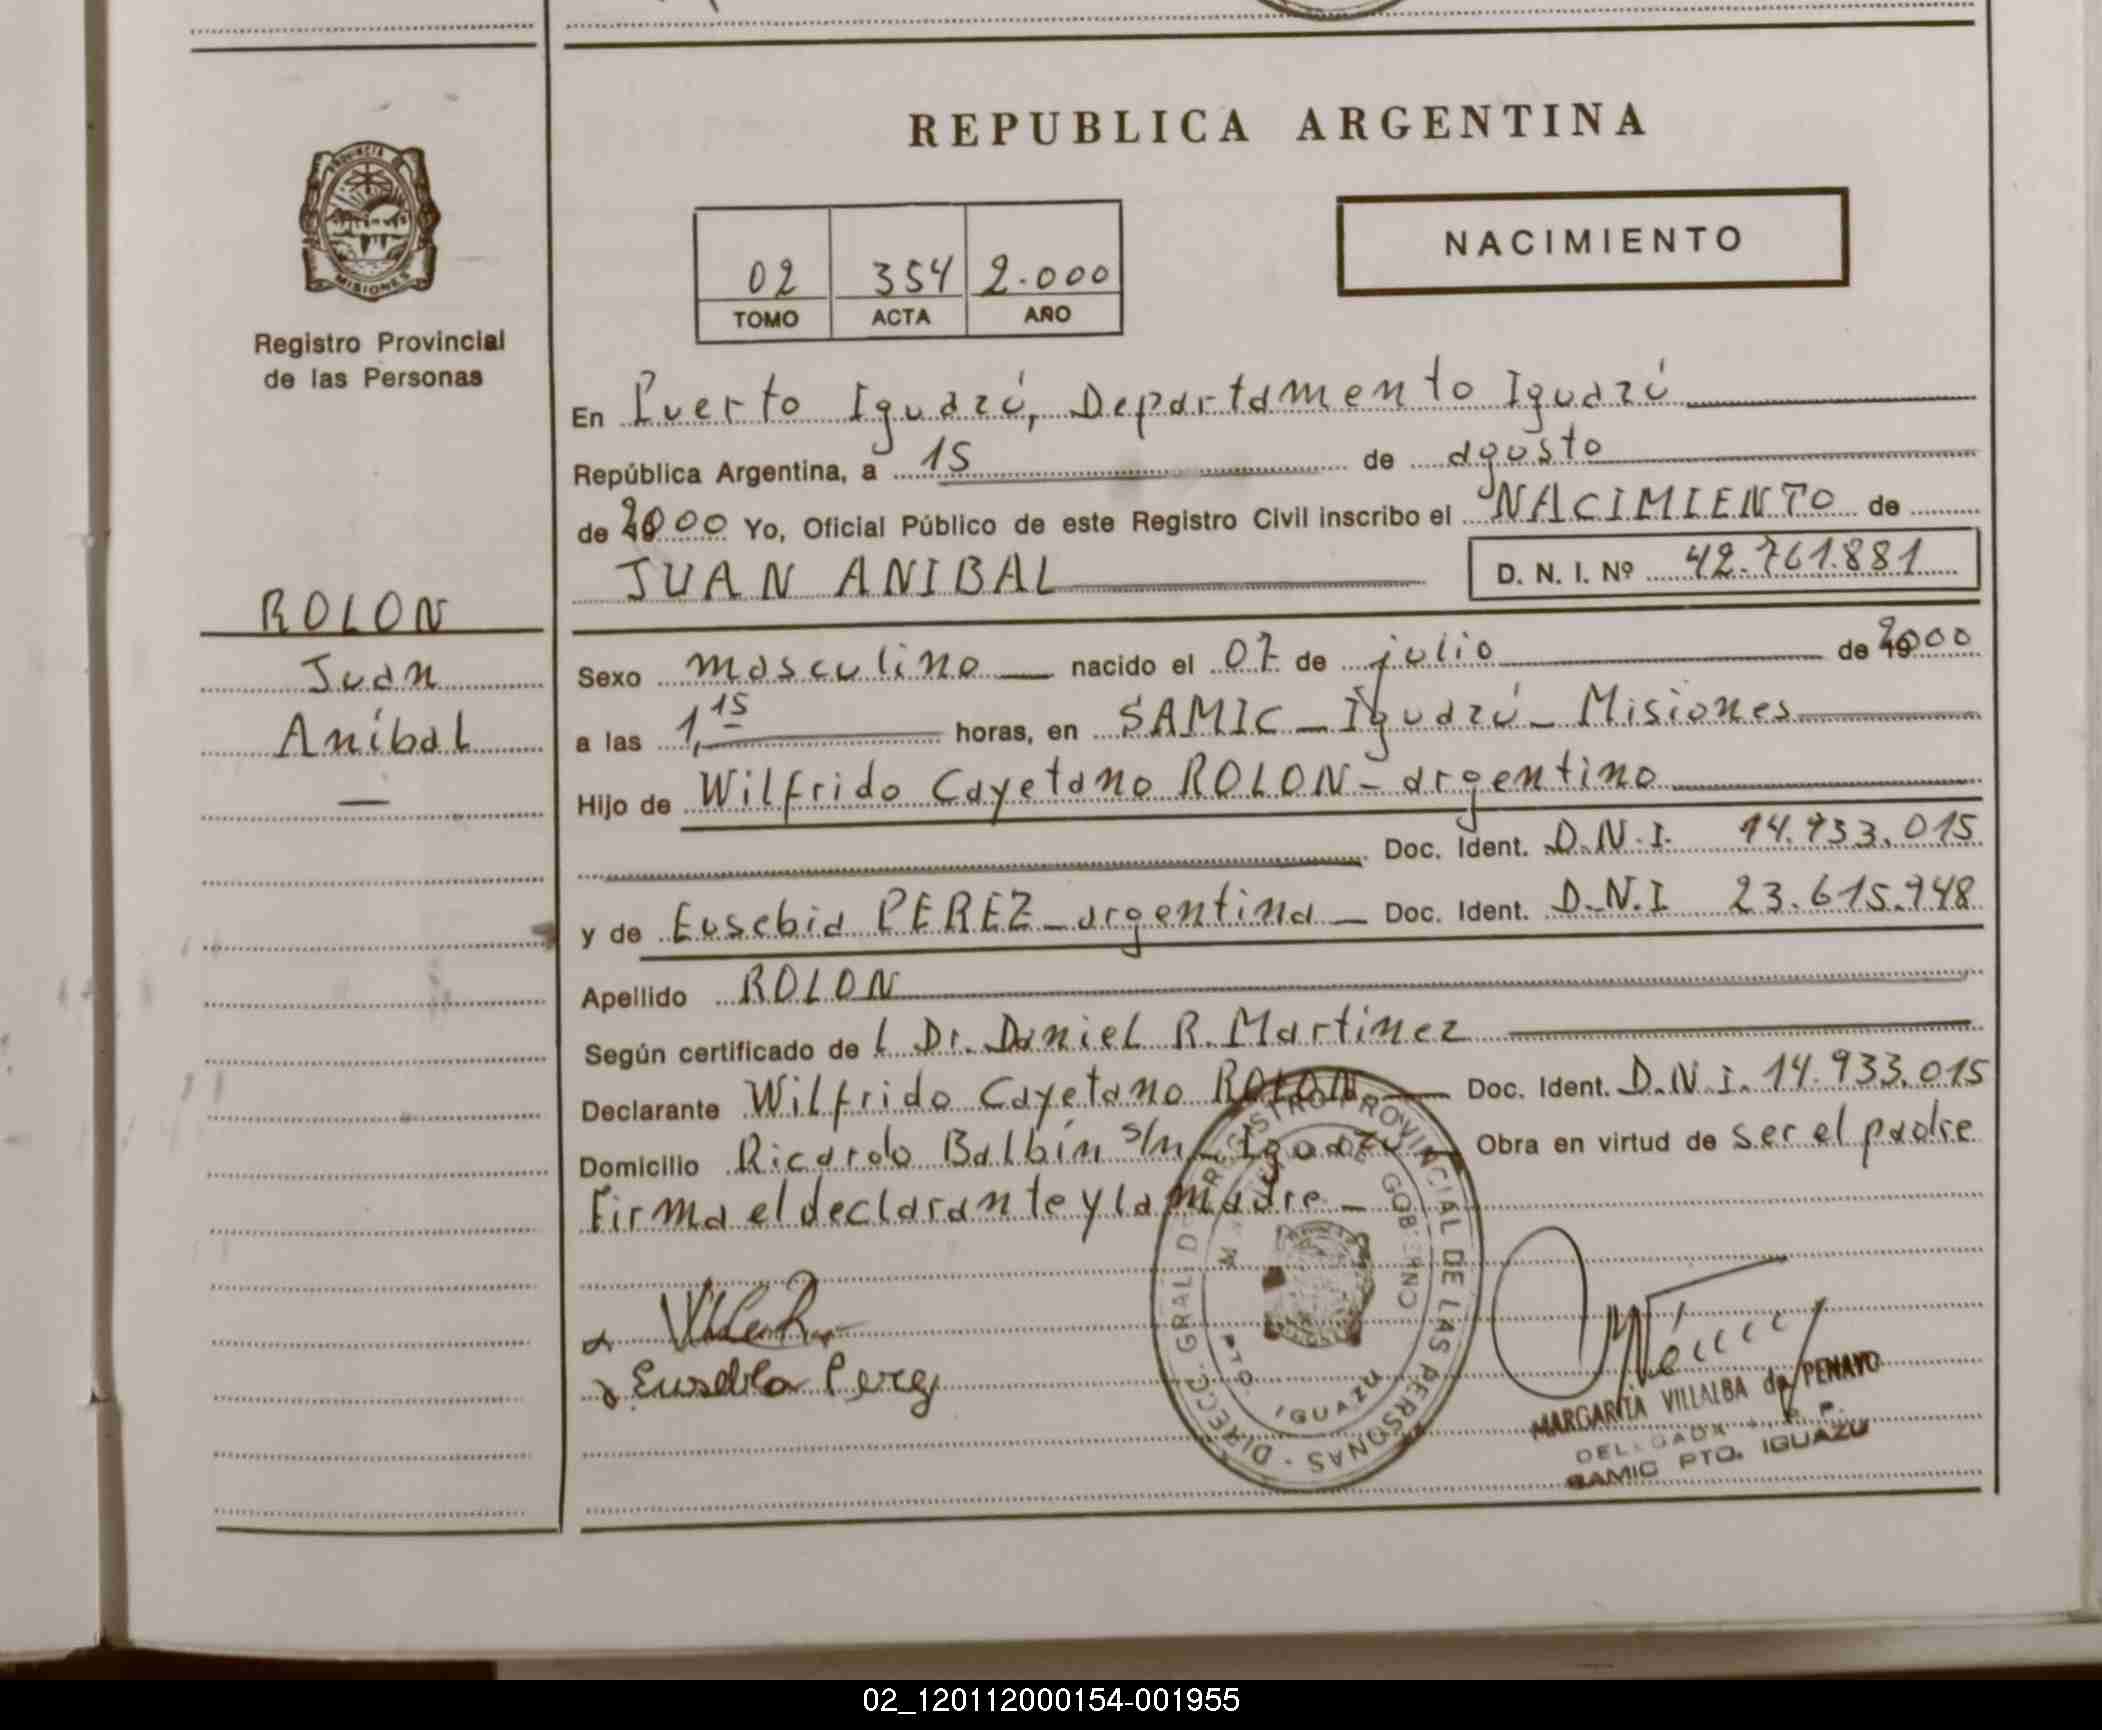 REPUBLICA ARGENTINA
PROVINCIA DE
MISIONES
Registro Provincial
de las Personas
NACIMIENTO
02 354 2.000
TOMO ACTA AÑO
En Puerto Iguazú, Departamento Iguazú
República Argentina, a 15 de agosto
de 2000 Yo, Oficial Público de este Registro Civil inscribo el NACIMIENTO de
JUAN ANIBAL D. N. I. Nº 42.761.881
ROLON
Juan
Aníbal
—
Sexo masculino nacido el 07 de julio de 2000
a las 1,15 horas, en SAMIC - Iguazú - Misiones
Hijo de Wilfrido Cayetano ROLON - argentino
Doc. Ident. D.N.I. 14.933.015
y de Eusebia PEREZ - argentina - Doc. Ident. D.N.I 23.615.948
Apellido ROLON
Según certificado de l Dr. Daniel R. Martinez
Declarante Wilfrido Cayetano ROLON - Doc. Ident. D.N.I. 14.933.015
Domicilio Ricardo Balbín s/n - Iguazú - Obra en virtud de ser el padre
Firma el declarante y la madre -
Eusebia Perez
DIRECC. GRAL. DEL REGISTRO PROVINCIAL DE LAS PERSONAS
DE GOBIERNO
PTO. IGUAZU
MARGARITA VILLALBA de PENAYO
SAMIC PTO. IGUAZU
02_120112000154-001955